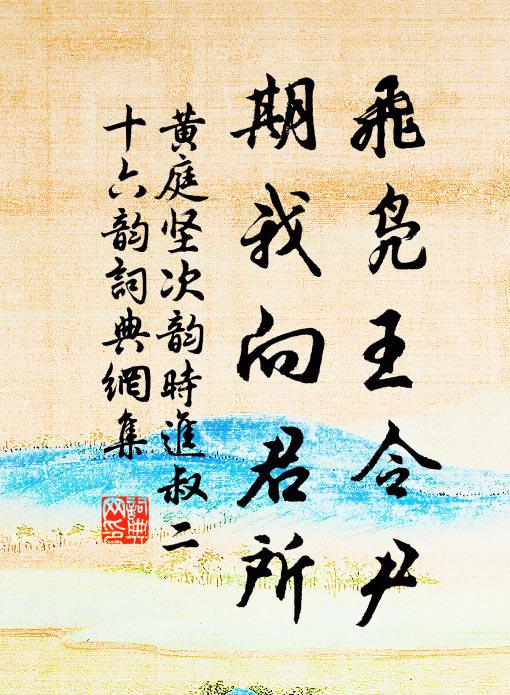 飛鳧王令尹
期我向君所
黃庭坚次韵時進叔二
十六韵詞典網集